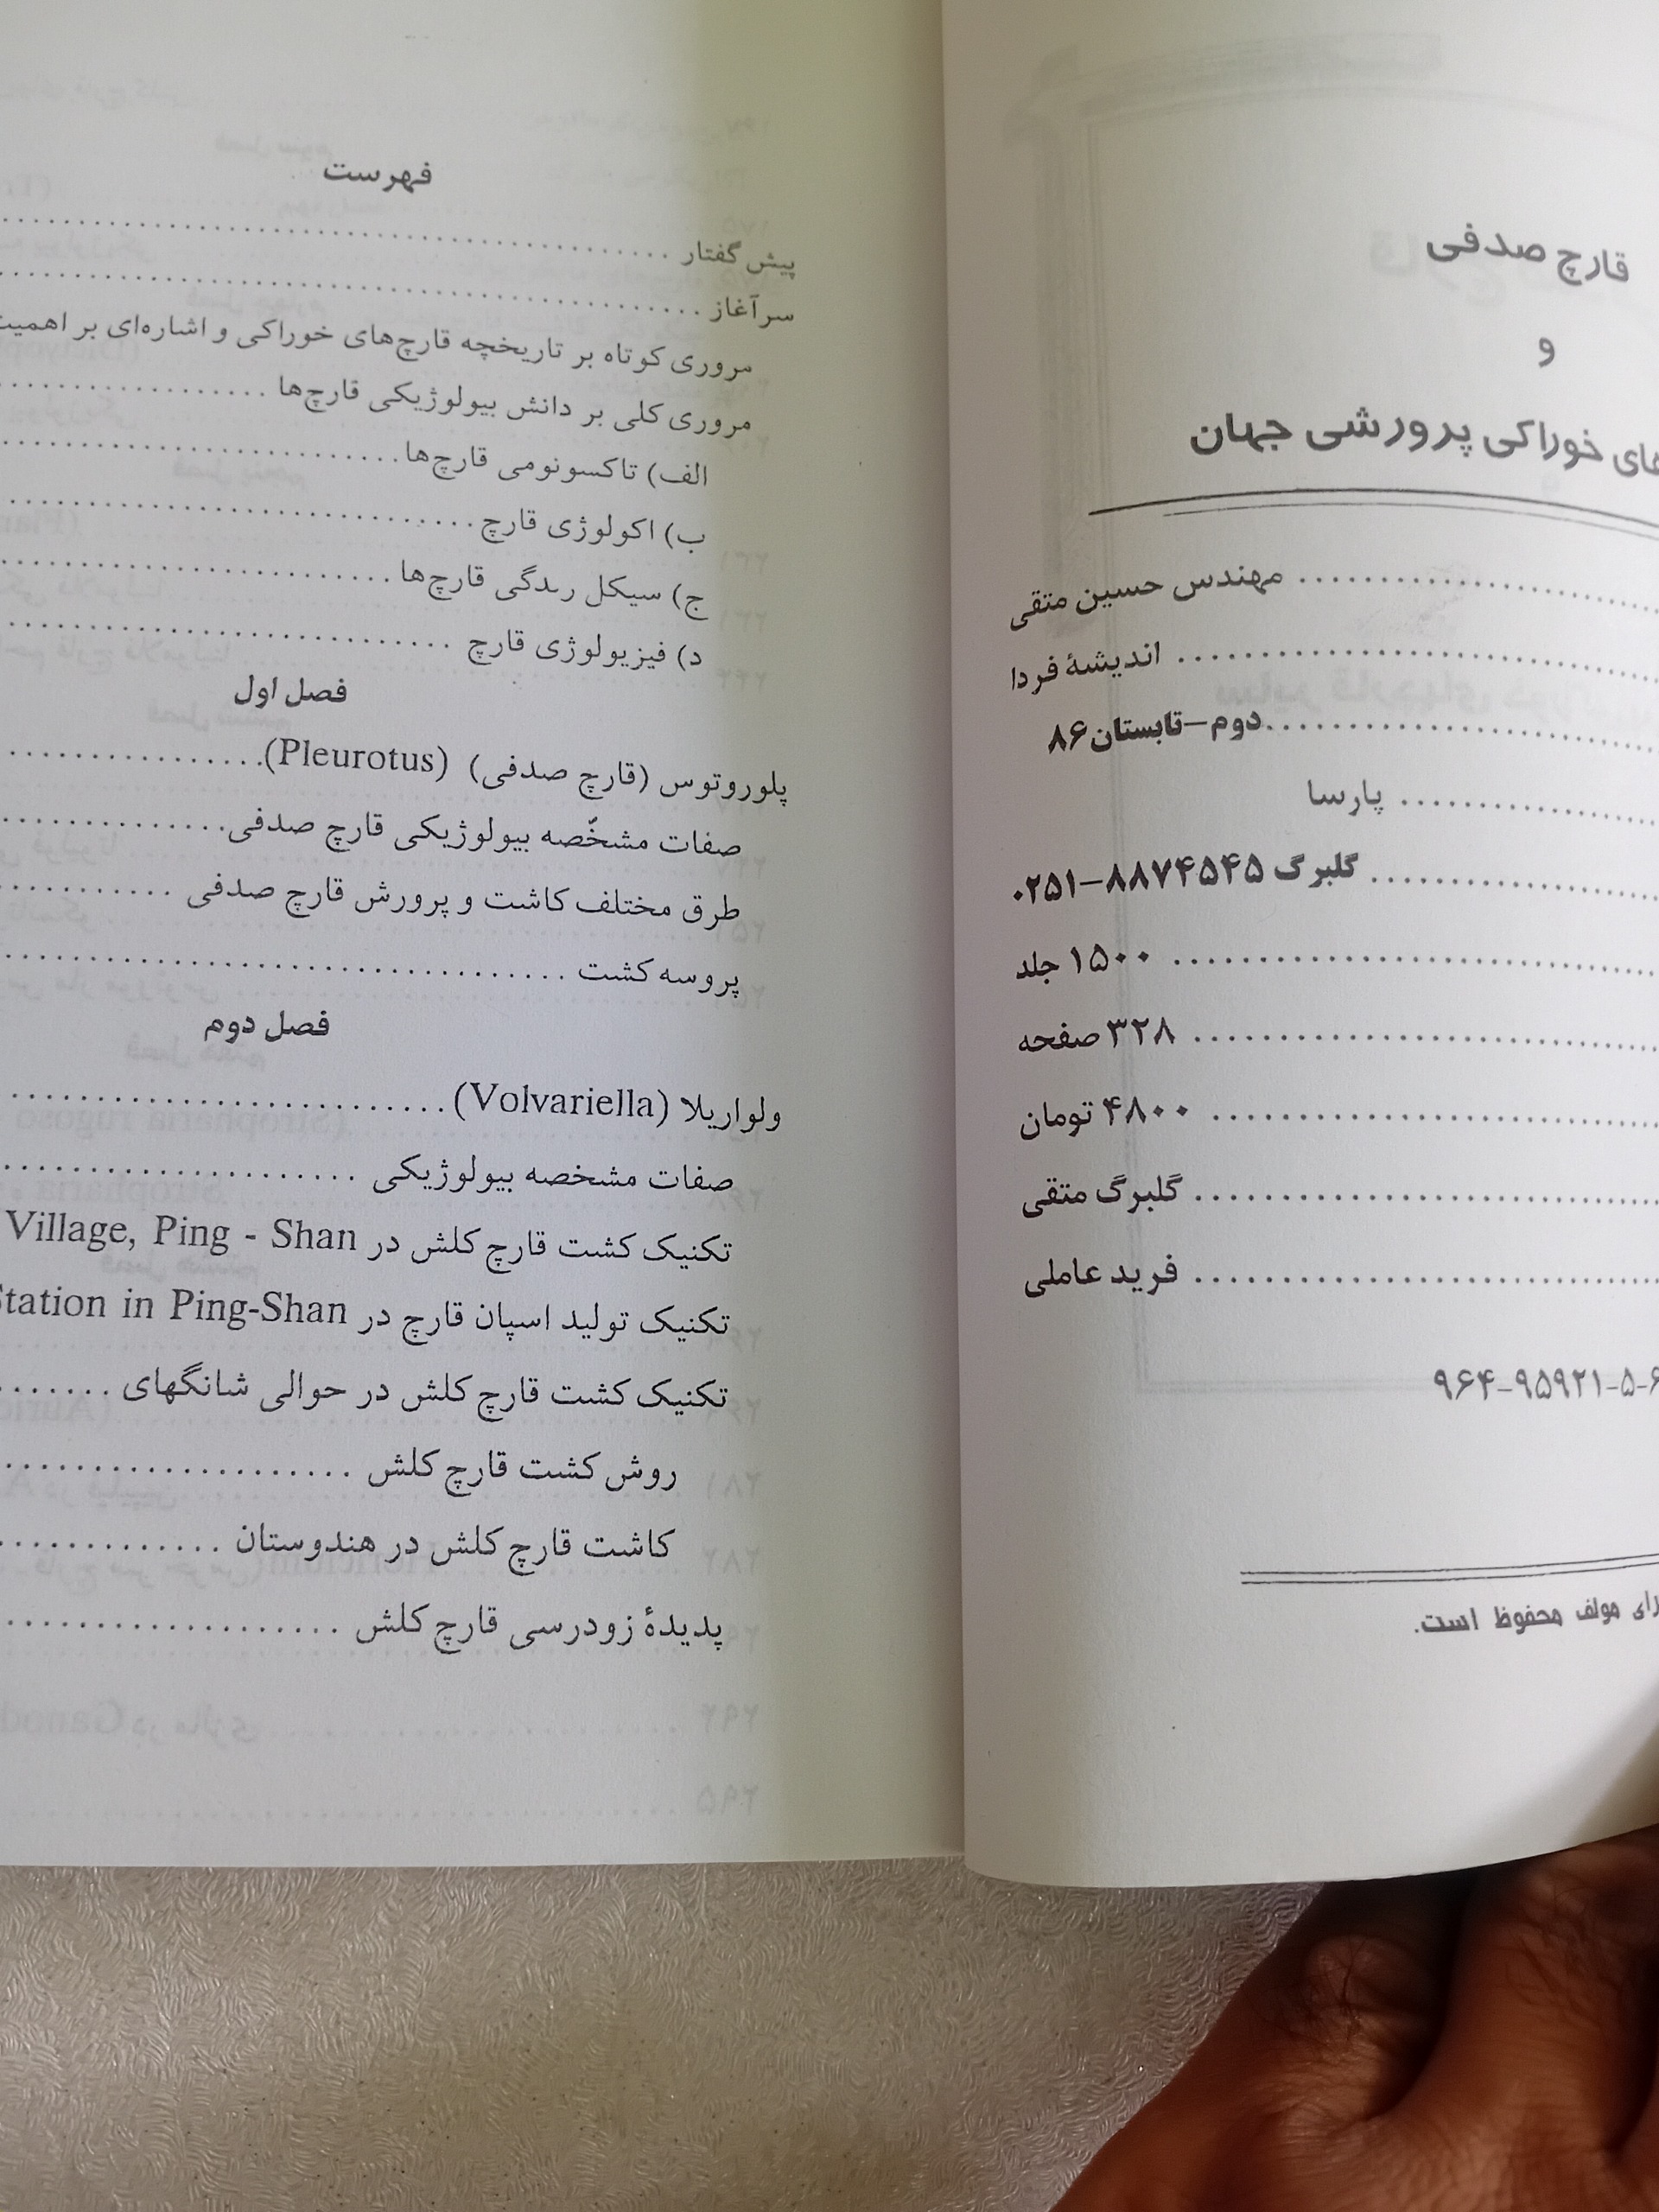 قارچ صدفی
و
های خوراکی پرورشی جهان
مهندس حسین متقی
اندیشهٔ فردا
دوم–تابستان۸۶
پارسا
گلبرگ ۸۸۷۴۵۴۵–۰۲۵۱
۱۵۰۰ جلد
۳۲۸ صفحه
۴۸۰۰ تومان
گلبرگ متقی
فرید عاملی
۹۶۴-۹۵۹۲۱-۵-۶
مولف محفوظ است.
فهرست
پیش گفتار
سرآغاز
مروری کوتاه بر تاریخچه قارچ‌های خوراکی و اشاره‌ای بر
مروری کلی بر دانش بیولوژیکی قارچ‌ها
الف) تاکسونومی قارچ‌ها
ب) اکولوژی قارچ
ج) سیکل قارچ‌ها
د) فیزیولوژی قارچ
فصل اول
پلوروتوس (قارچ صدفی) (Pleurotus)
صفات مشخّصه بیولوژیکی قارچ صدفی
طرق مختلف کاشت و پرورش قارچ صدفی
پروسه کشت
فصل دوم
ولواریلا (Volvariella)
صفات مشخصه بیولوژیکی
تکنیک کشت قارچ کلش در Village, Ping - Shan
تکنیک تولید اسپان قارچ در Station in Ping-Shan
تکنیک کشت قارچ کلش در حوالی شانگهای
روش کشت قارچ کلش
کاشت قارچ کلش در هندوستان
پدیدهٔ زودرسی قارچ کلش